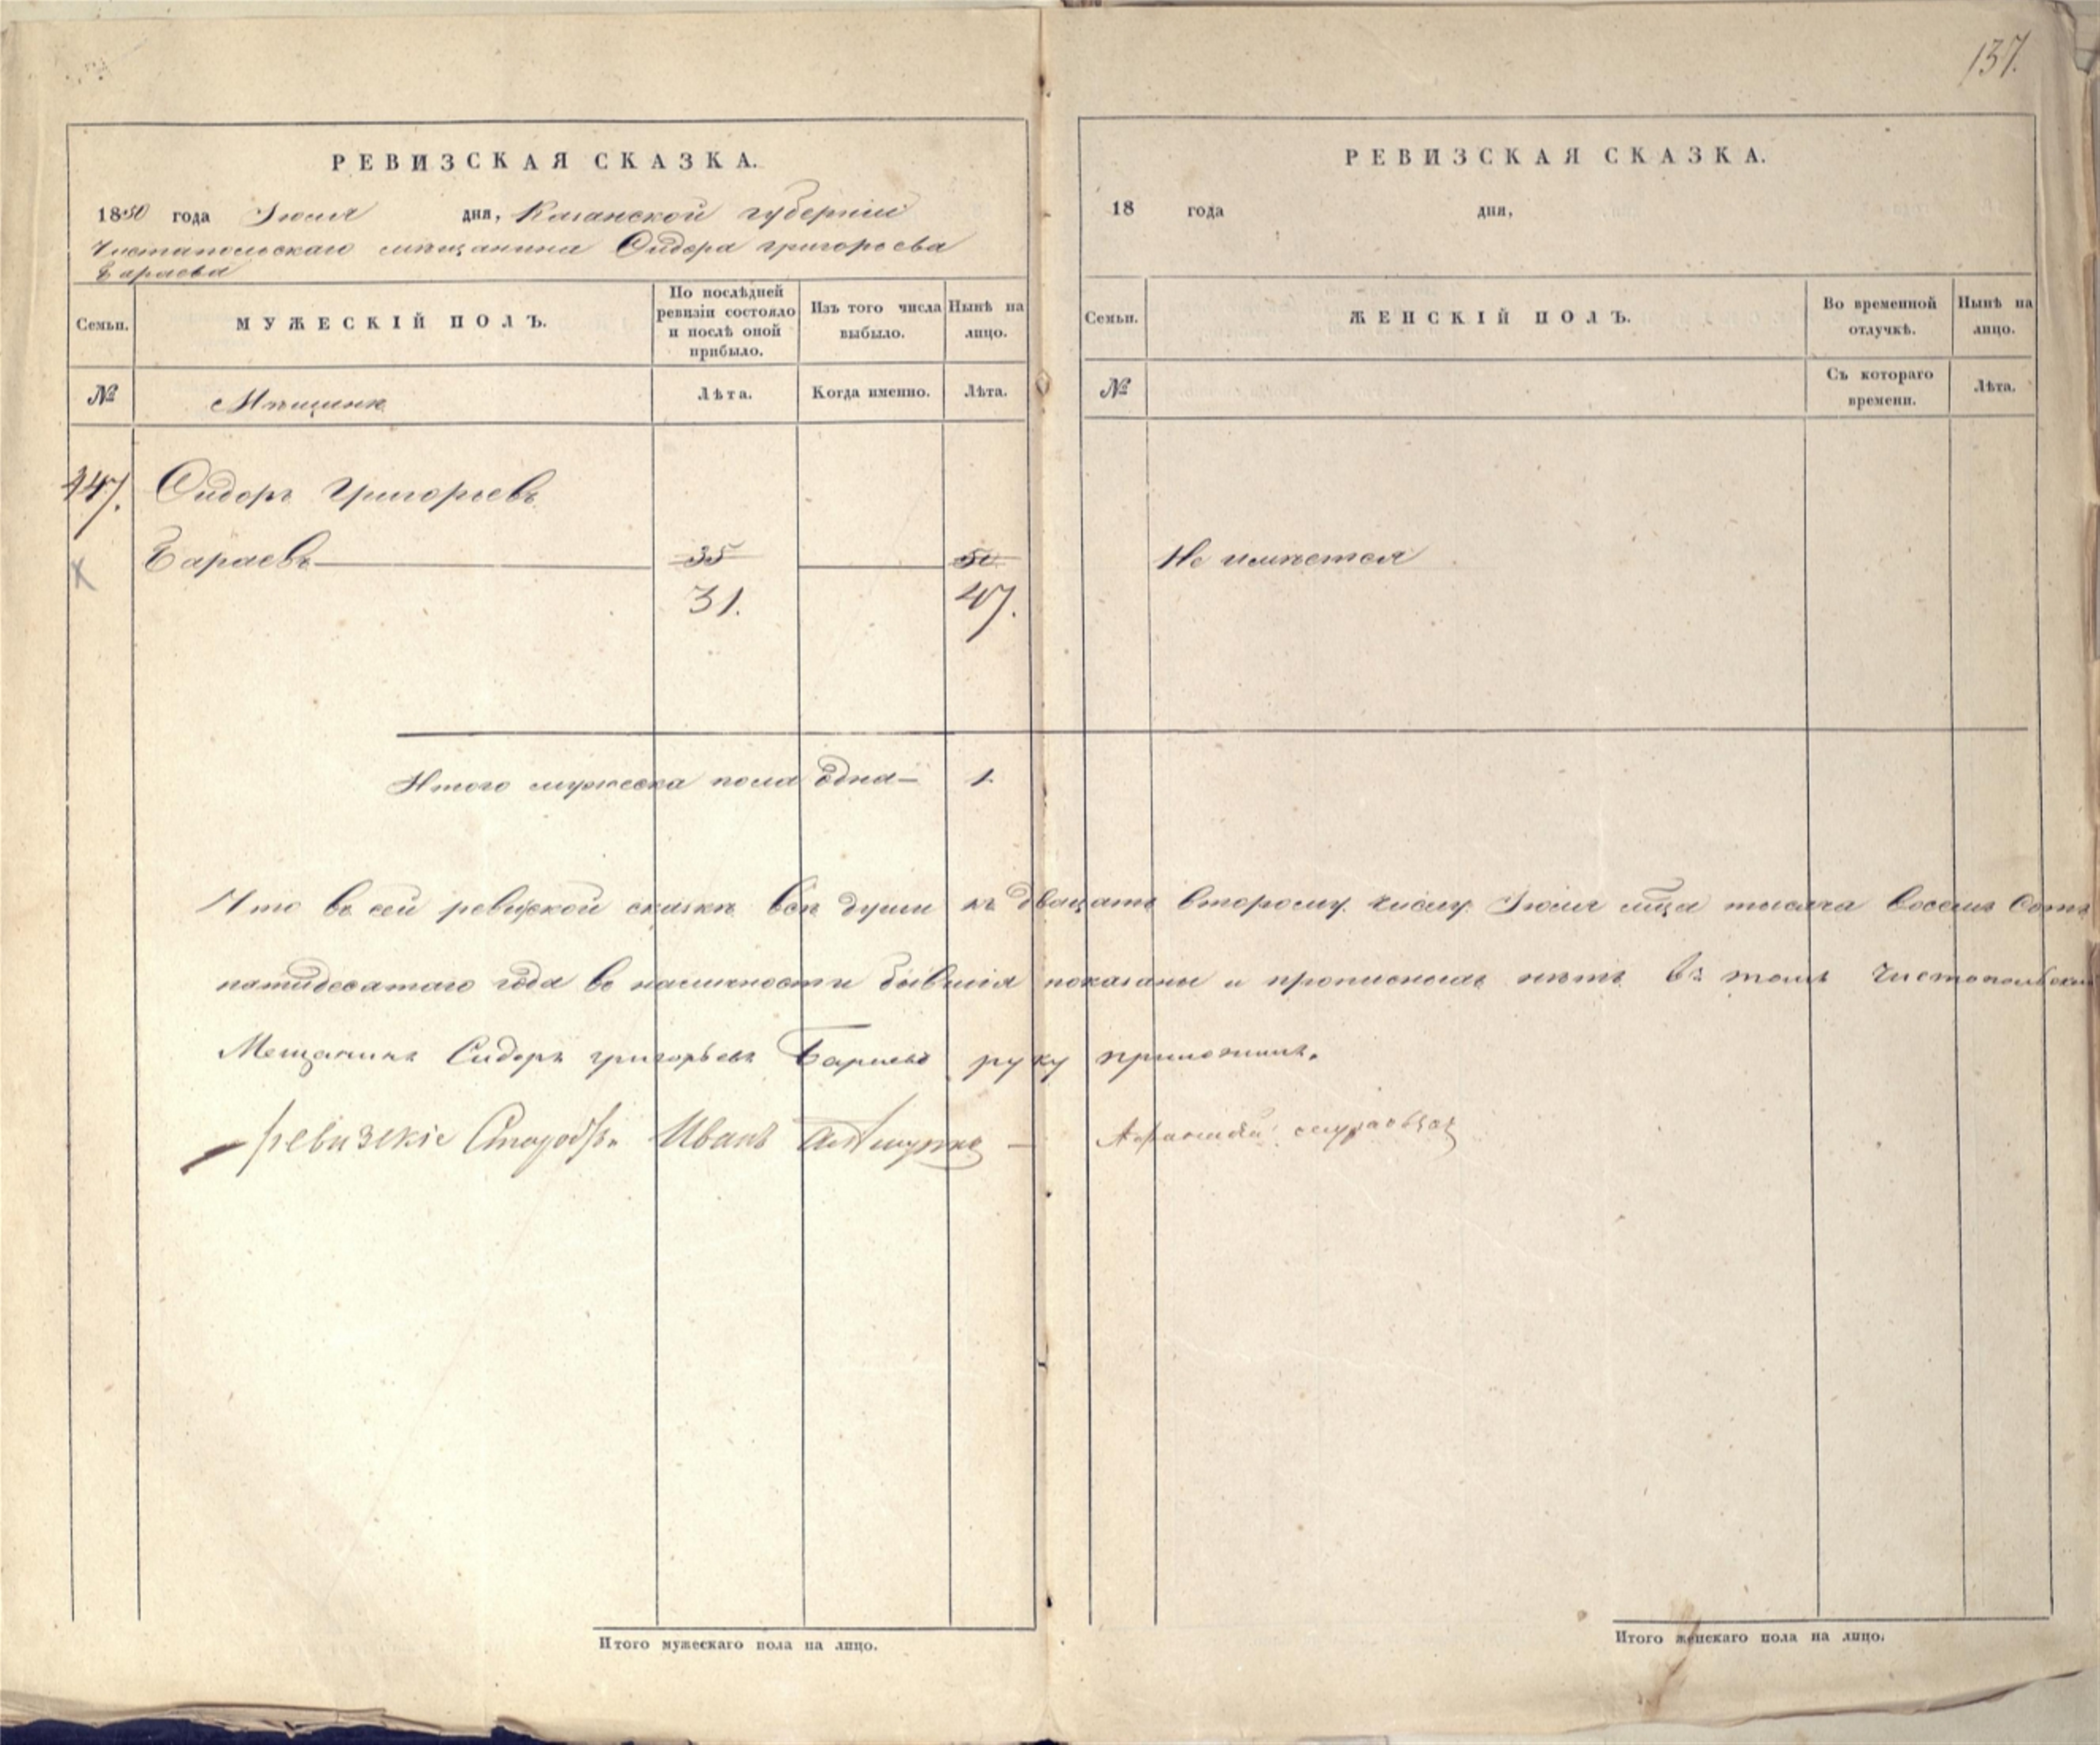 137.
РЕВИЗСКАЯ СКАЗКА.
1850 года Іюля дня, Казанской губерніи
Чистапольскаго мѣщанина Сидора Григорьева
Бараева
Семьи.
МУЖЕСКІЙ ПОЛЪ.
По послѣдней ревизіи состояло и послѣ оной прибыло.
Изъ того числа выбыло.
Нынѣ на лицо.
№
Мѣщине
Лѣта.
Когда именно.
Лѣта.
147. Сидоръ Григорьевъ
Бараевъ 35 50
31. 47.
Итого мужеска пола Одна 1.
РЕВИЗСКАЯ СКАЗКА.
18 года дня,
Семьи.
ЖЕНСКІЙ ПОЛЪ.
Во временной отлучкѣ.
Нынѣ на лицо.
№
Съ котораго времени.
Лѣта.
Не имѣется
Что въ сей ревиской сказкѣ всѣ души къ двацать второму числу Іюля мца тысяча восемь Сотъ
пятидесятаго года въ наличности бывшія показаны и прописныхъ нѣтъ въ томъ Чистопольскій
Мещанинъ Сидоръ григорьевъ Бараевъ руку приложилъ.
ревизскіе Иванъ
Итого мужескаго пола на лицо.
Итого женскаго пола на лицо.